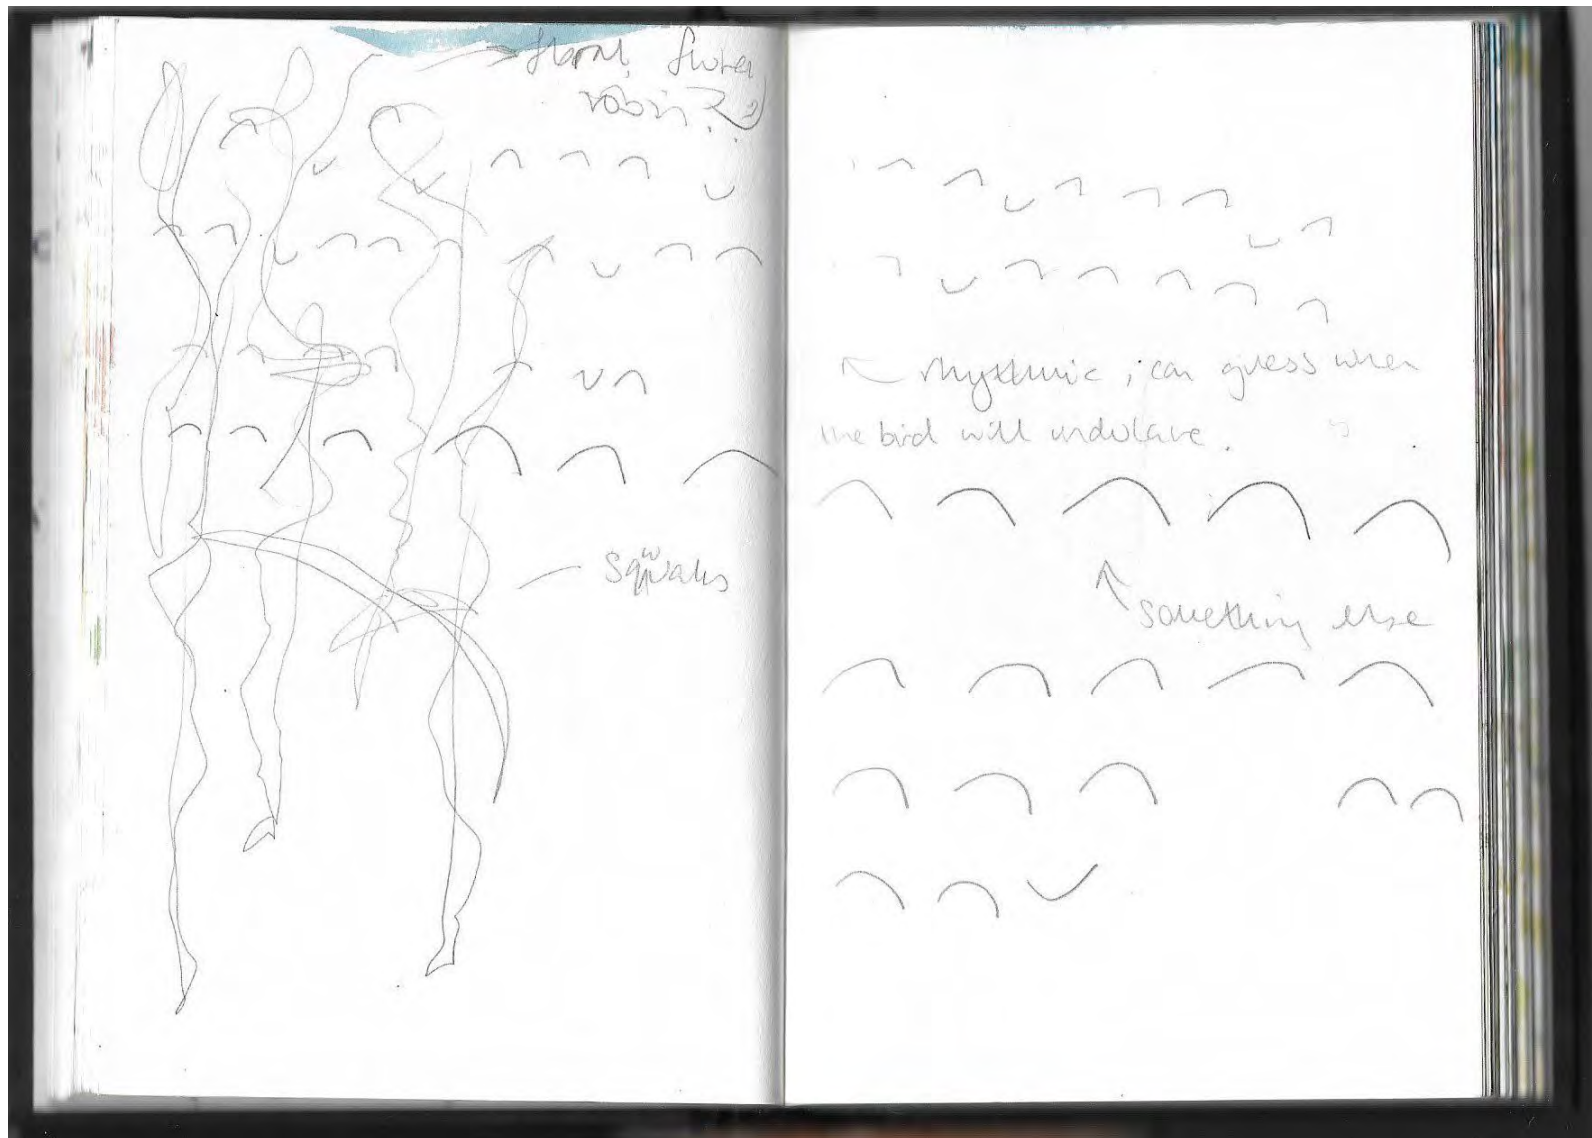 floral, flutey
robin?
squawks
rhythmic, i can guess when
the bird will undulate.
something else